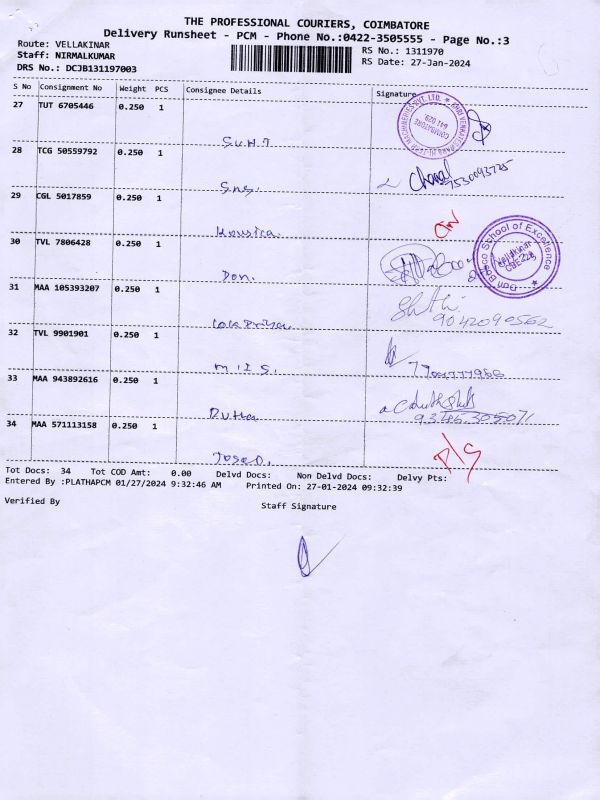 THE PROFESSIONAL COURIERS, COIMBATORE
Delivery Runsheet - PCM - Phone No.:0422-3505555 - Page No.:3
Route: VELLAKINAR
RS No.: 1311970
Staff: NIRMALKUMAR
RS Date: 27-Jan-2024
DRS No.: DCJB131197003
S No Consignment No Weight PCS Consignee Details Signature
27 TUT 6705446 0.250 1
28 TCG 50559792 0.250 1
Sns.
29 CGL 5017859 0.250 1
30 TVL 7806428 0.250 1
Don Bosco School of Excellence
Vellakinar
Don.
31 MAA 105393207 0.250 1
9042090562
32 TVL 9901901 0.250 1
M.I.S.
33 MAA 943892616 0.250 1
34 MAA 571113158 0.250 1
P/S
Tot Docs: 34 Tot COD Amt: 0.00 Delvd Docs: Non Delvd Docs: Delvy Pts:
Entered By :PLATHAPCM 01/27/2024 9:32:46 AM Printed On: 27-01-2024 09:32:39
Verified By
Staff Signature